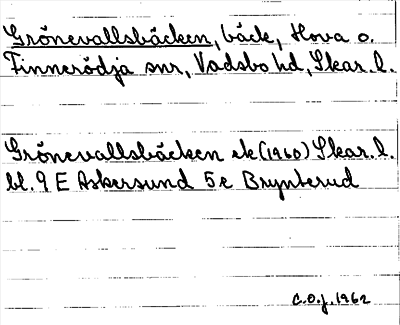 Grönevallsbäcken, bäck, Hova o.
Finnerödja snr, Vadsbo hd, Skar. l.
Grönevallsbäcken ek (1960) Skar. l.
bl. 9 E Askersund 5e Brynterud
C.O.J. 1962